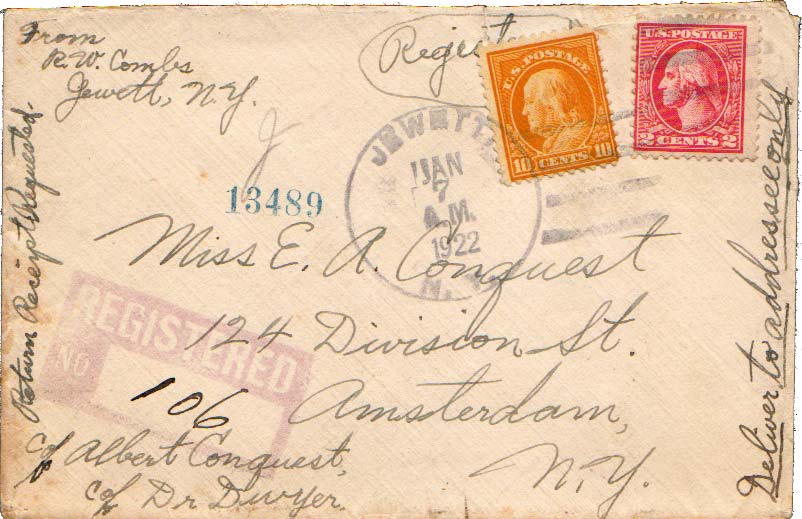 From
R. W. Combs
Jewett, N.Y.
U.S. POSTAGE
10 CENTS 10
U.S. POSTAGE
2 CENTS 2
JEWETT
JAN
7
A.M.
1922
N.
13489
Miss E. A. Conquest
124 Division St.
Amsterdam,
N.Y.
REGISTERED
NO
106
c/o Albert Conquest,
c/o Dr. Dwyer.
Return Receipt Requested.
Deliver to addressee only